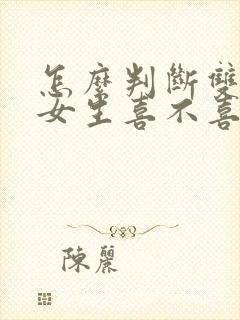 怎麼判斷雙
女生喜不喜
陳麗